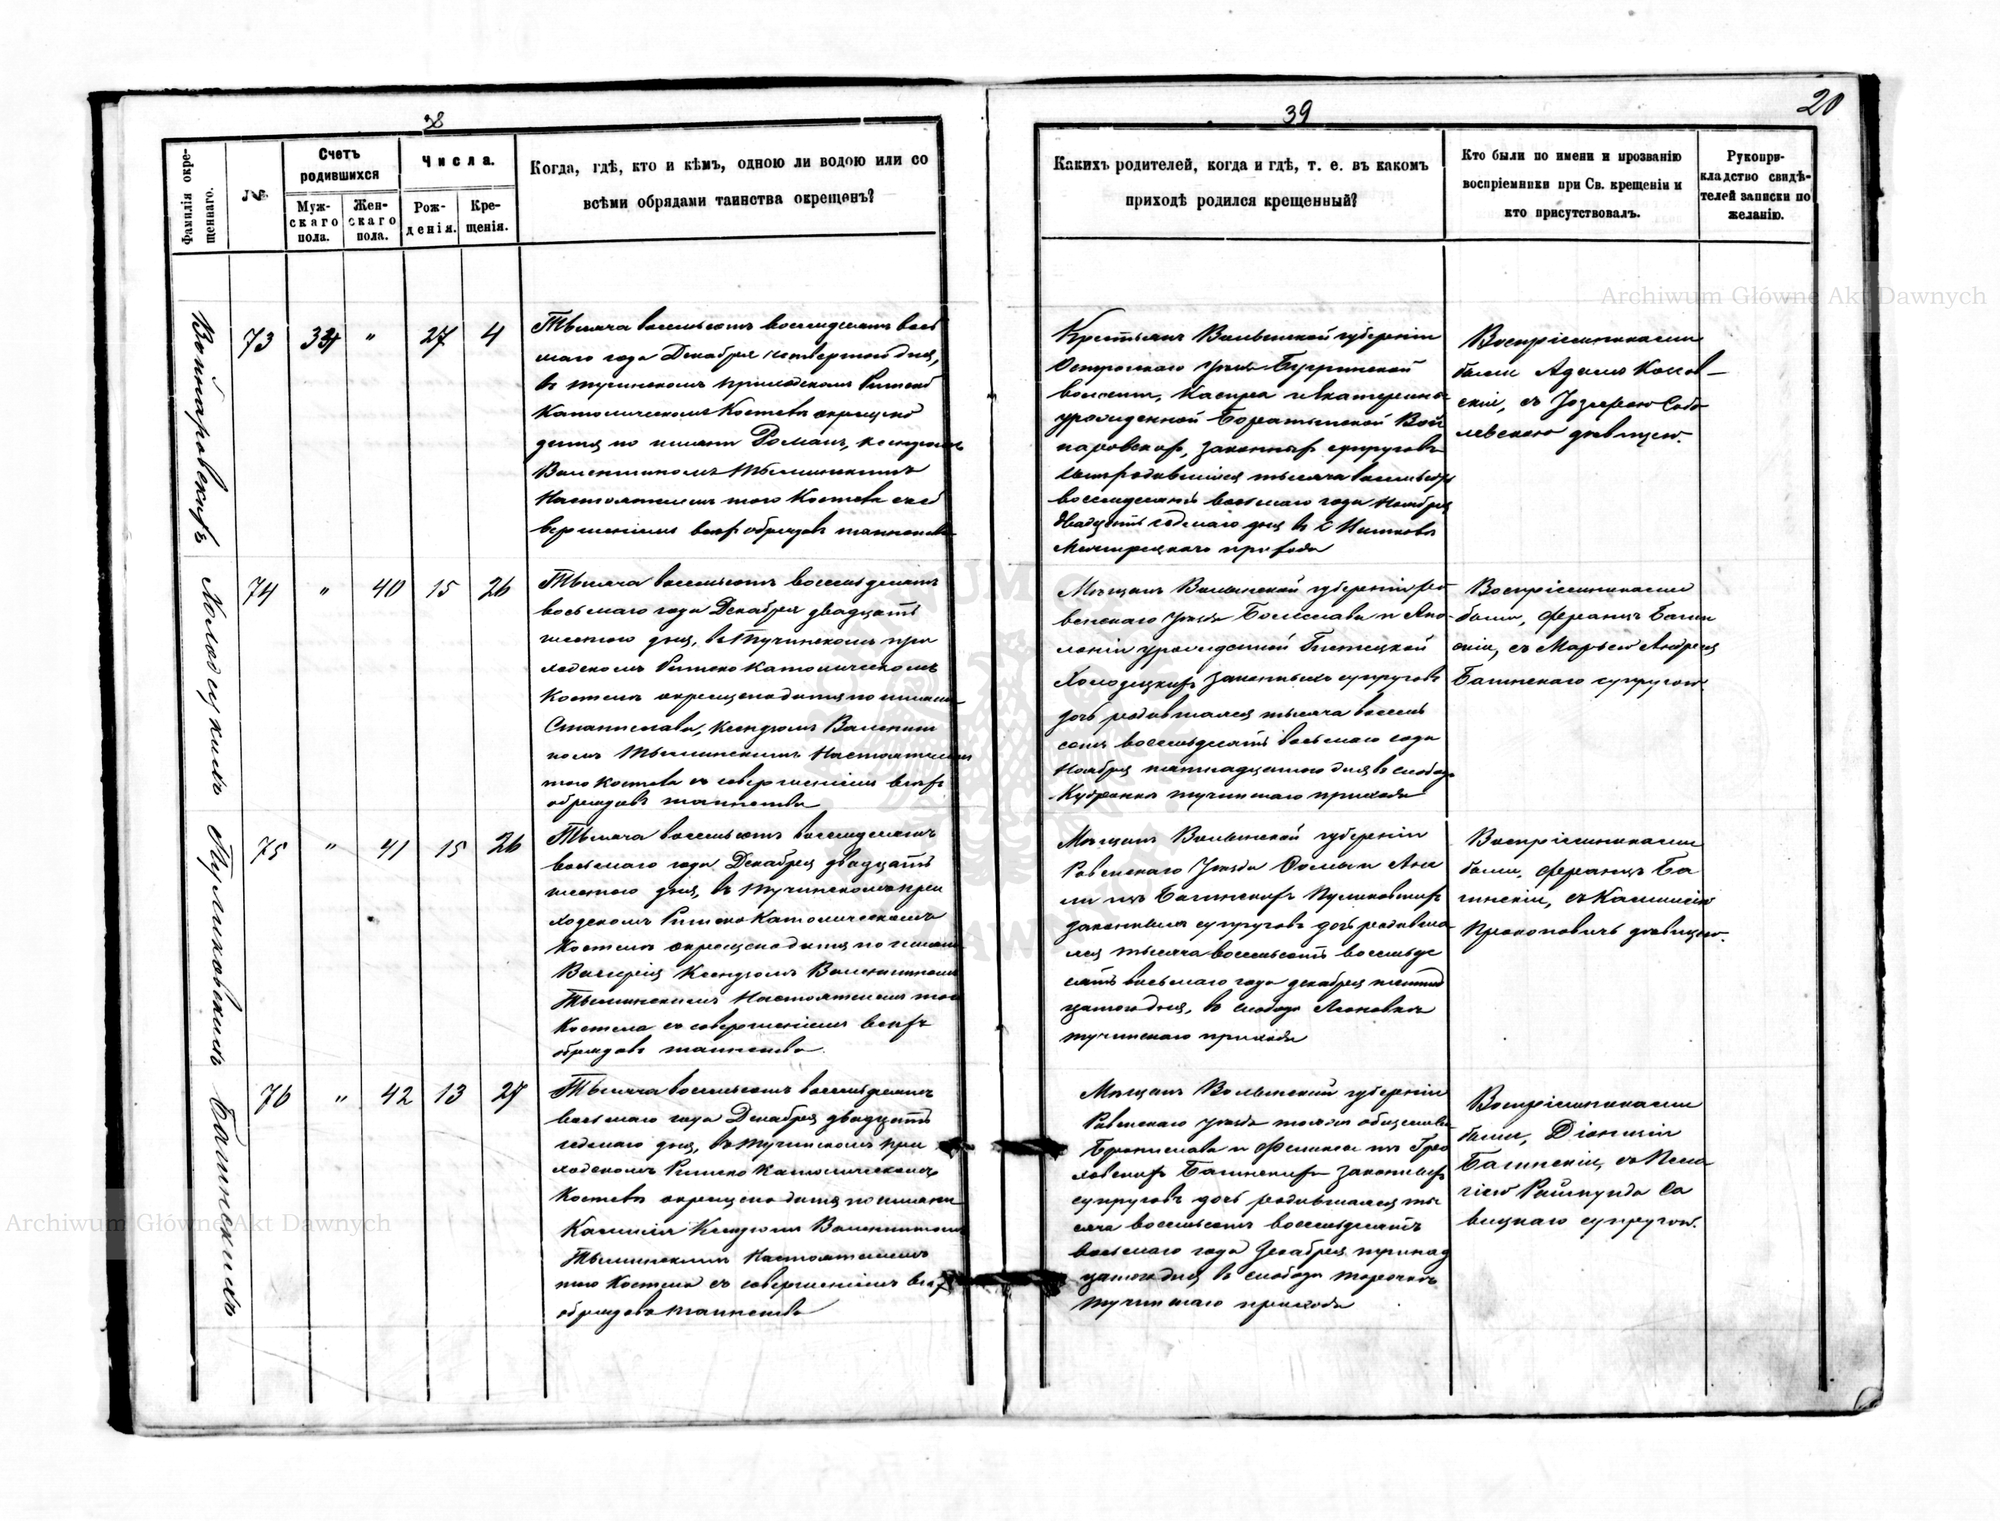 38
39
20
Фамилія окре-
щеннаго.
№.
Счетъ
родившихся
Муж-
скаго
пола.
Жен-
скаго
пола.
Числа.
Рож-
денія.
Кре-
щенія.
Когда, гдѣ, кто и кѣмъ, одною ли водою или со
всѣми обрядами таинства окрещенъ?
Какихъ родителей, когда и гдѣ, т. е. въ какомъ
приходѣ родился крещенный?
Кто были по имени и прозванію
воспріемники при Св. крещеніи и
кто присутствовалъ.
Рукопри-
кладство свидѣ-
телей записки по
желанію.
Войнаровскихъ
73 34 " 27 4
Тысяча восемьсотъ восемдесятъ вось
маго года Декабря четвертого дня,
въ тучинскомъ приходскомъ Римско
Католическомъ Костелѣ окрещено
дитя по имени Романъ, ксендзомъ
Валентиномъ Тышинскимъ
Настоятелемъ того Костела съ со
вершеніемъ всѣхъ обрядовъ таинства
Крестьянъ Волынской губерніи
Острогского уѣзда Бугринской
волости, Каспра и Екатерины
урожденной Вой
наровскихъ, законныхъ супруговъ
сынъ родившійся тысяча восемьсотъ
восемдесятъ восьмаго года Ноября
двадцать седмаго дня въ
прихода
Воспріемниками
были Адамъ Коссов-
скій, съ Іозефою Собо
левскою дѣвицею.
Холодецкихъ
74 " 40 15 26
Тысяча восемьсотъ восемьдесятъ
восьмаго года Декабря двадцать
шестого дня, въ Тучинскомъ при
ходскомъ Римско Католическомъ
Костелѣ окрещено дитя по имени
Станислава, Ксендзомъ Валенти
номъ Тышинскимъ Настоятелемъ
того Костела съ совершеніемъ всѣхъ
обрядовъ таинства
Мѣщанъ Волынской губерніи Ро
венскаго уѣзда Болеслава и Апо-
лоніи урожденной
Холодецкихъ законныхъ супруговъ
дочь родившаяся тысяча восемь
сотъ восемьдесятъ восьмаго года
Ноября пятнадцатого дня въ слободѣ
тучинскаго прихода
Воспріемниками
были, Францъ Багин
скій, съ Марьею Андрея
Багинскаго супругою.
Пуликовскихъ
75 " 41 15 26
Тысяча восемьсотъ восемдесятъ
восьмаго года Декабря двадцать
шестого дня, въ Тучинскомъ при
ходскомъ Римско Католическомъ
Костелѣ окрещено дитя по имени
Валерія Ксендзомъ Валентиномъ
Тышинскимъ Настоятелемъ того
Костела съ совершеніемъ всѣхъ
обрядовъ таинства.
Мѣщанъ Волынской губерніи
Ровенскаго Уѣзда Фомы и Ане
ли изъ Багинскихъ Пуликовскихъ
законныхъ супруговъ дочь родивша
яся тысяча восемьсотъ восемьде
сятъ восьмаго года декабря пятнад
цатого дня, въ слободѣ Леоновкѣ
тучинскаго прихода
Воспріемниками
были, Францъ Ба
гинскій, съ Камилею
Прокоповичъ дѣвицею.
Багинскихъ
76 " 42 13 27
Тысяча восемьсотъ восемьдесятъ
восьмаго года Декабря двадцать
седмаго дня, въ Тучинскомъ при
ходскомъ Римско Католическомъ
Костелѣ окрещено дитя по имени
Камилія Ксендзомъ Валентиномъ
Тышинскимъ Настоятелемъ
того Костела съ совершеніемъ всѣхъ
обрядовъ таинства
Мѣщанъ Волынской губерніи
Ровенскаго уѣзда общества
Брониславы и изъ
Багинскихъ законныхъ
супруговъ дочь родившаяся ты
сяча восемьсотъ восемьдесятъ
восьмаго года Декабря тринад
цатого дня въ слободѣ
тучинскаго прихода
Воспріемниками
были, Діонисій
Багинскій, съ Пела
гіею Раймунда Са
вицкаго супругою.
Archiwum Główne Akt Dawnych
Archiwum Główne Akt Dawnych